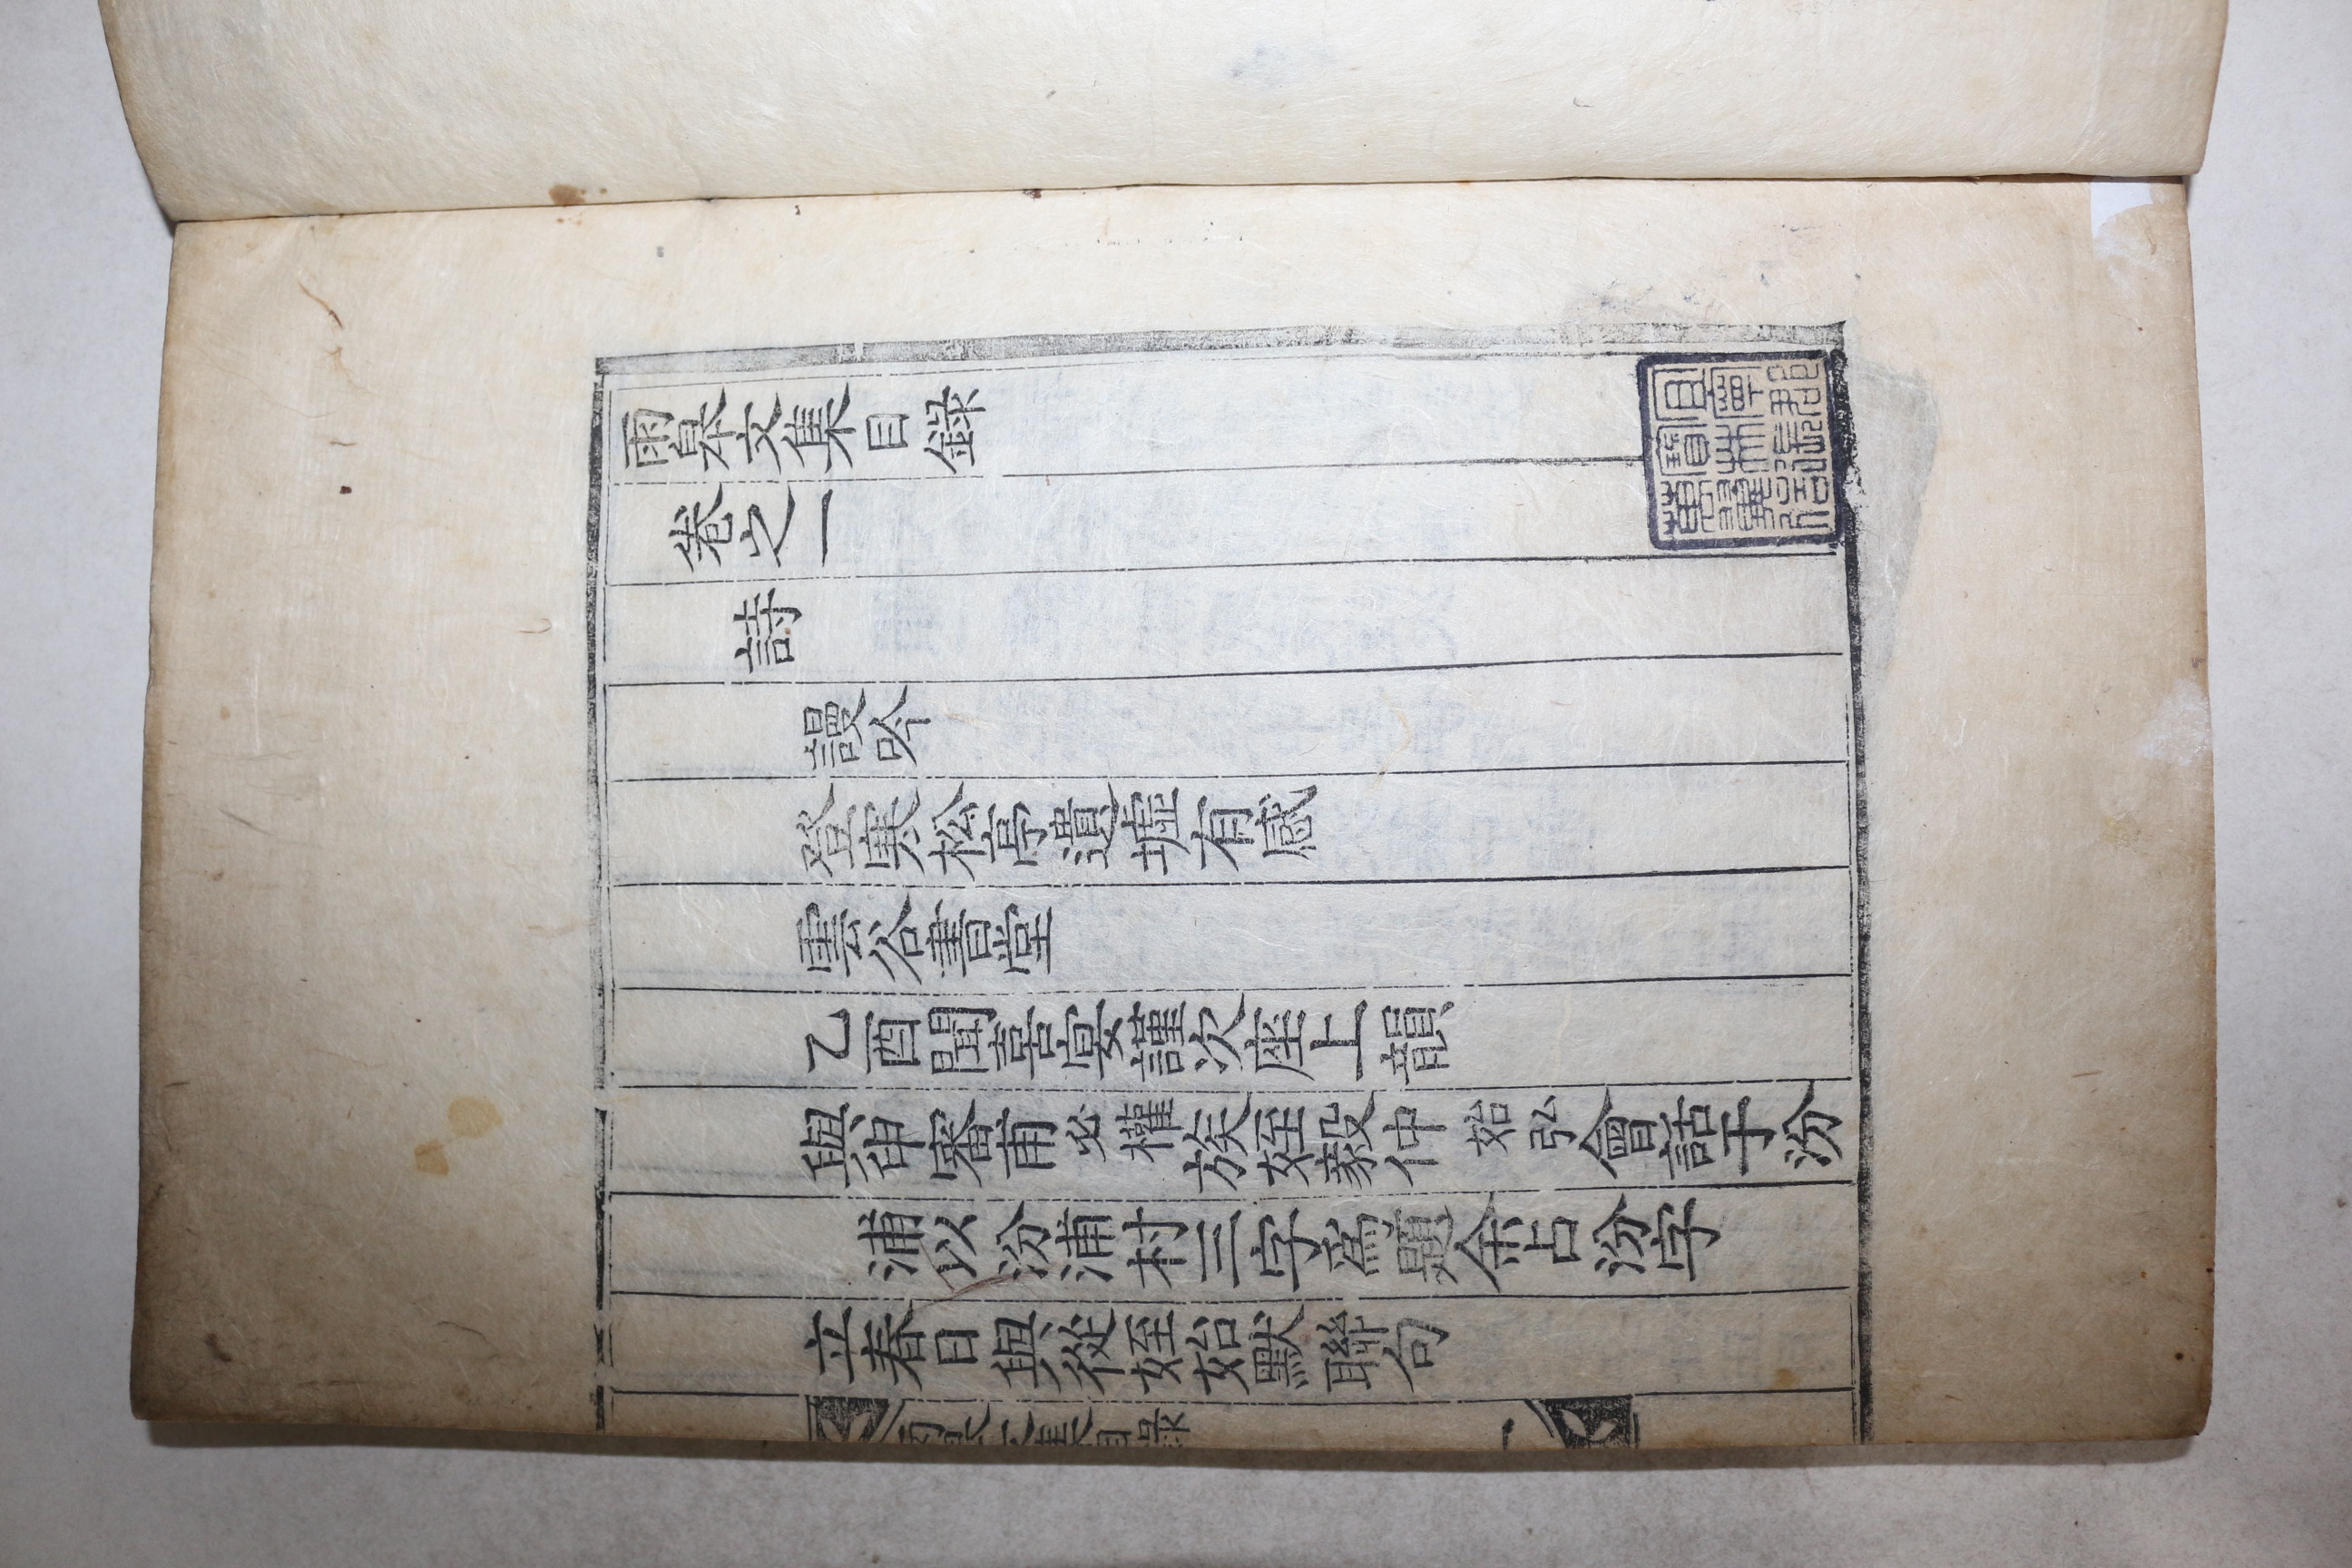 雨皋文集目錄
卷之一
詩
謾吟
登寒松亭遺墟有感
雲谷書堂
乙酉聞喜宴謹次座上韻
與申審甫必權族姪毅仲始弘會話于汾
浦以汾浦村三字爲題余占汾字
立春日與從姪始默聯句
雨皋文集目錄 一